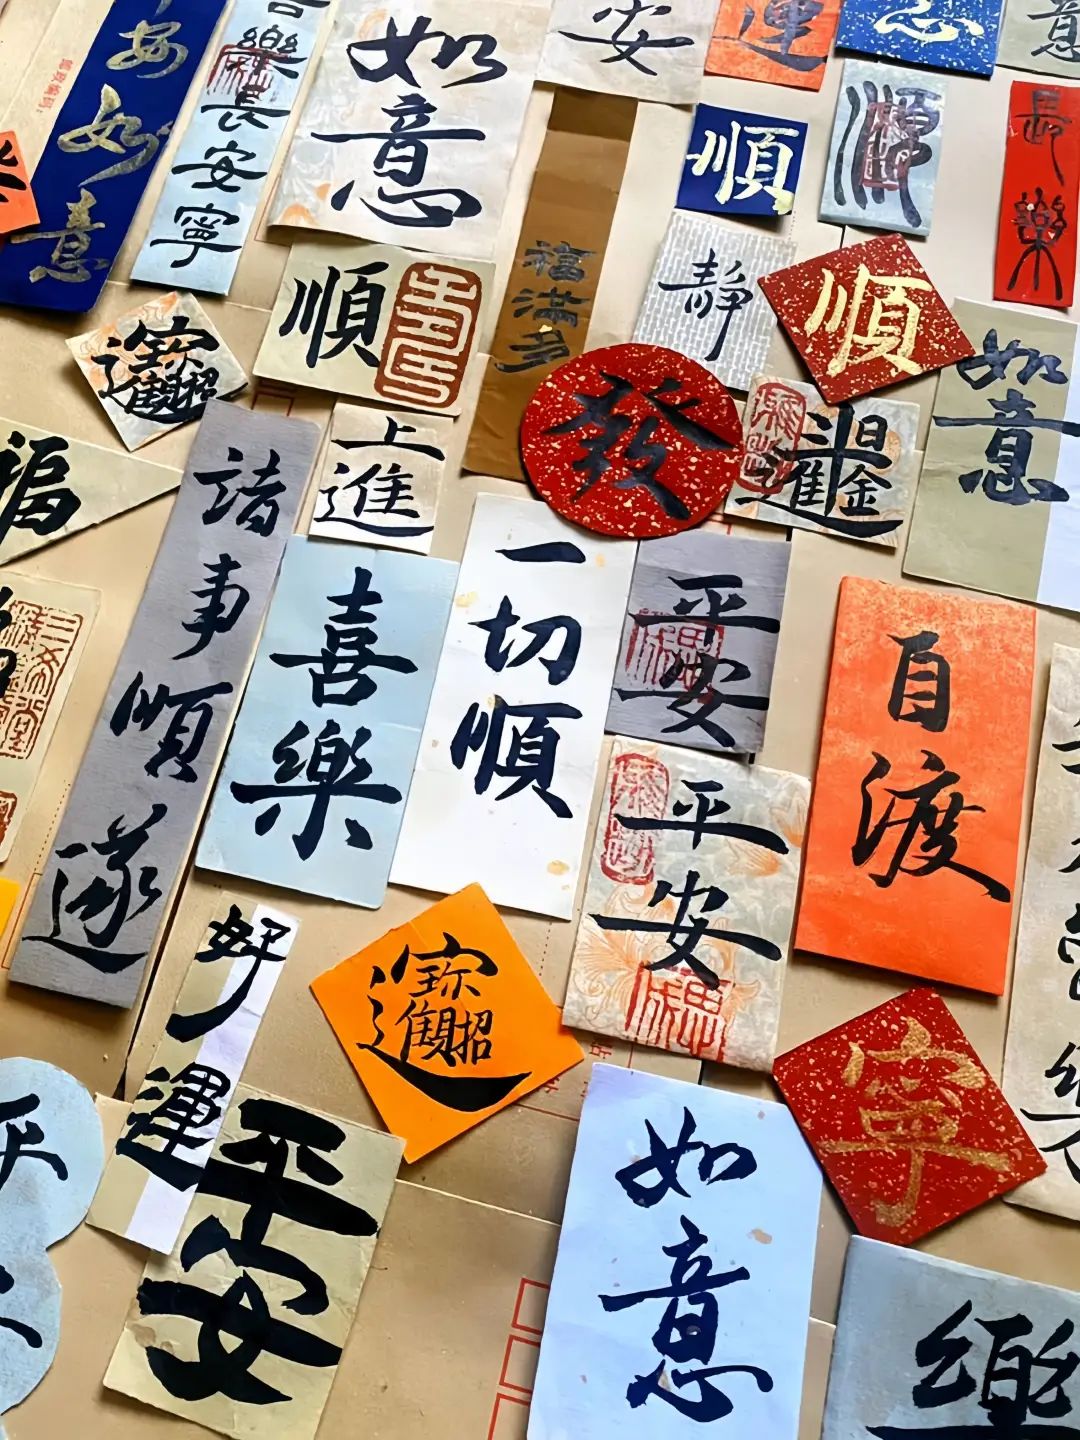 安如意
樂長安寧
如意
安
運
順
長樂
福滿多
順
靜
順
如意
招財進寶
發
日進斗金
上進
福
諸事順遂
喜樂
一切順
平安
自渡
平安
好運
招財進寶
寧
平安
如意
樂